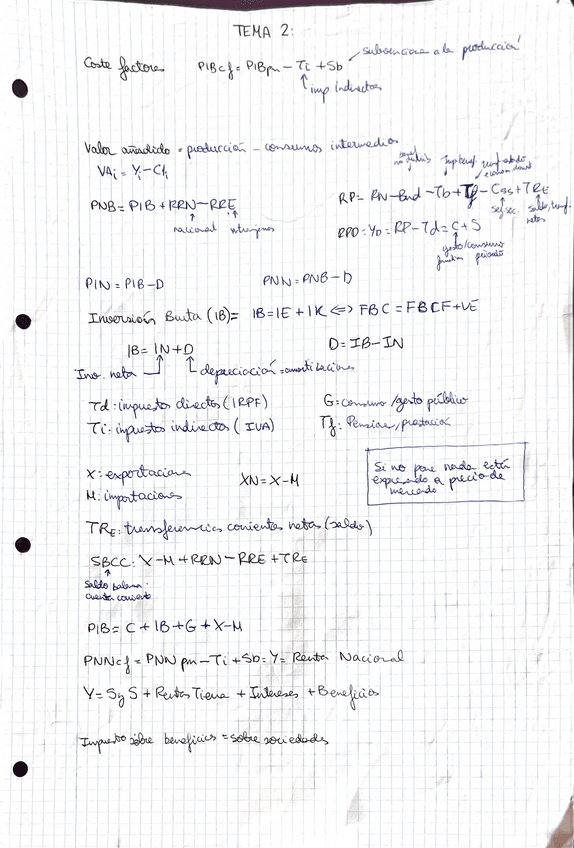 TEMA 2:
subvenciones a la producción
Coste factores PIBcf = PIBpm - Ti + Sb
imp indirectos
Valor añadido = producción - consumos intermedios
VAi = Yi - CIi
RP = RN - Bnd - Tb + Tf - Css + TRE
PNB = PIB + RRN - RRE
nacional
RPD: YD = RP - Td = C + S
gasto/consumo
privado
PIN = PIB - D PNN = PNB - D
Inversión Bruta (IB) = IB = IE + IK <=> FBC = FBCF + VE
IB = IN + D D = IB - IN
Inv. neta depreciación = amortizaciones
Td: impuestos directos (IRPF) G: consumo/gasto público
Ti: impuestos indirectos (IVA) Tf: Pensiones, prestación
X: exportaciones XN = X - M
M: importaciones
Si no pone nada está
expresado a precio de
mercado
TRE: transferencias corrientes netas (saldo)
SBCC: X - M + RRN - RRE + TRE
saldo balanza
cuenta corriente
PIB = C + IB + G + X - M
PNNcf = PNNpm - Ti + Sb = Y = Renta Nacional
Y = SyS + Rentas Tierra + Intereses + Beneficios
Impuesto sobre beneficios = sobre sociedades